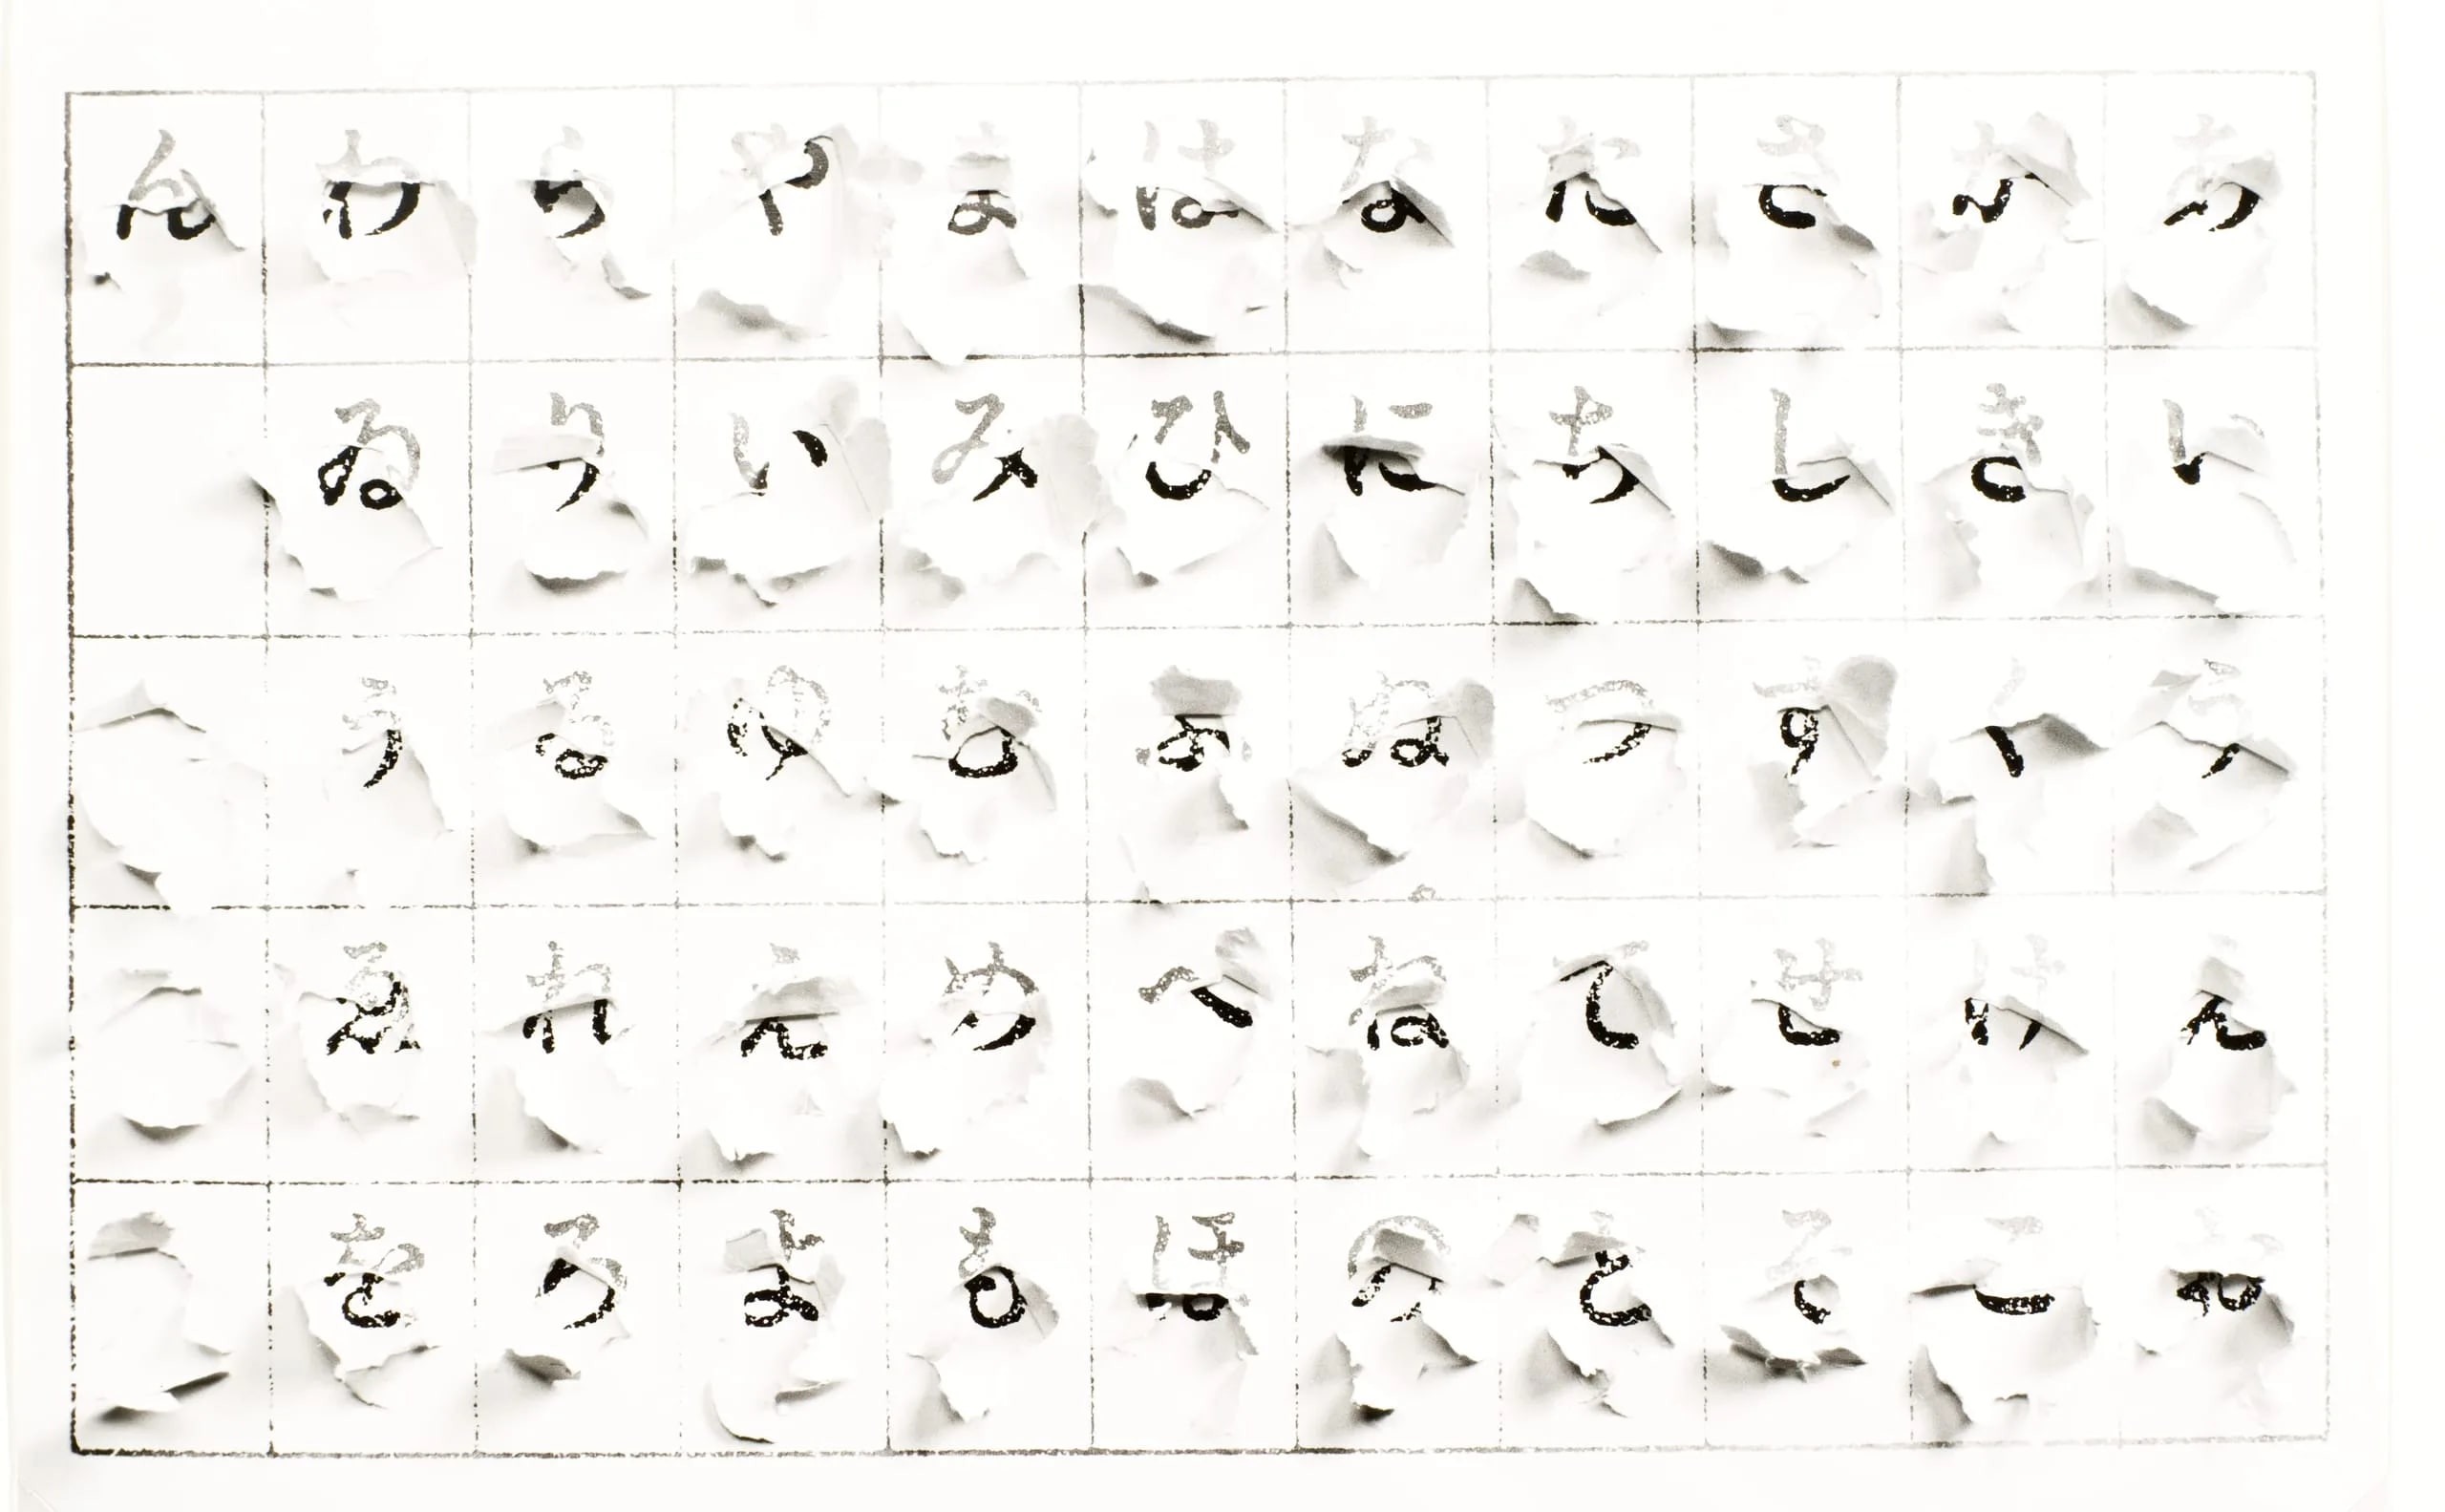 あいうえお
かきくけこ
さしすせそ
たちつてと
なにぬねの
はひふへほ
まみむめも
やいゆえよ
らりるれろ
わゐうゑを
ん